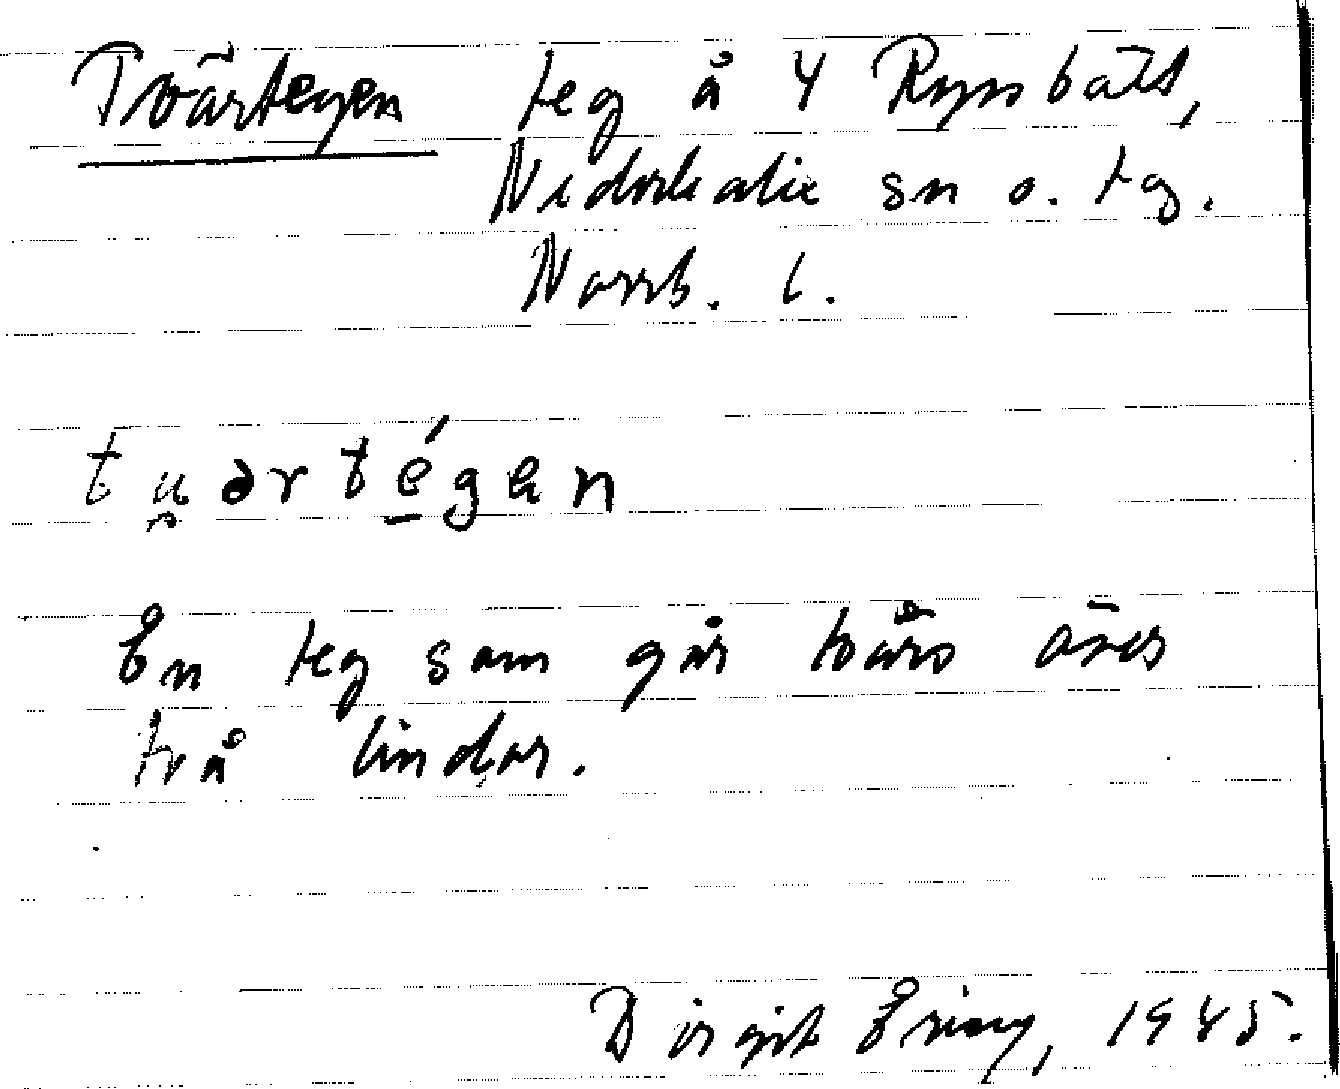 Tvärtegen teg å 4 Rysbält,
Nederkalix sn o. tg.
Norrb. l.
tu̯ərtégen
En teg som går tvärs över
två lindor.
Birgit Ering, 1945.